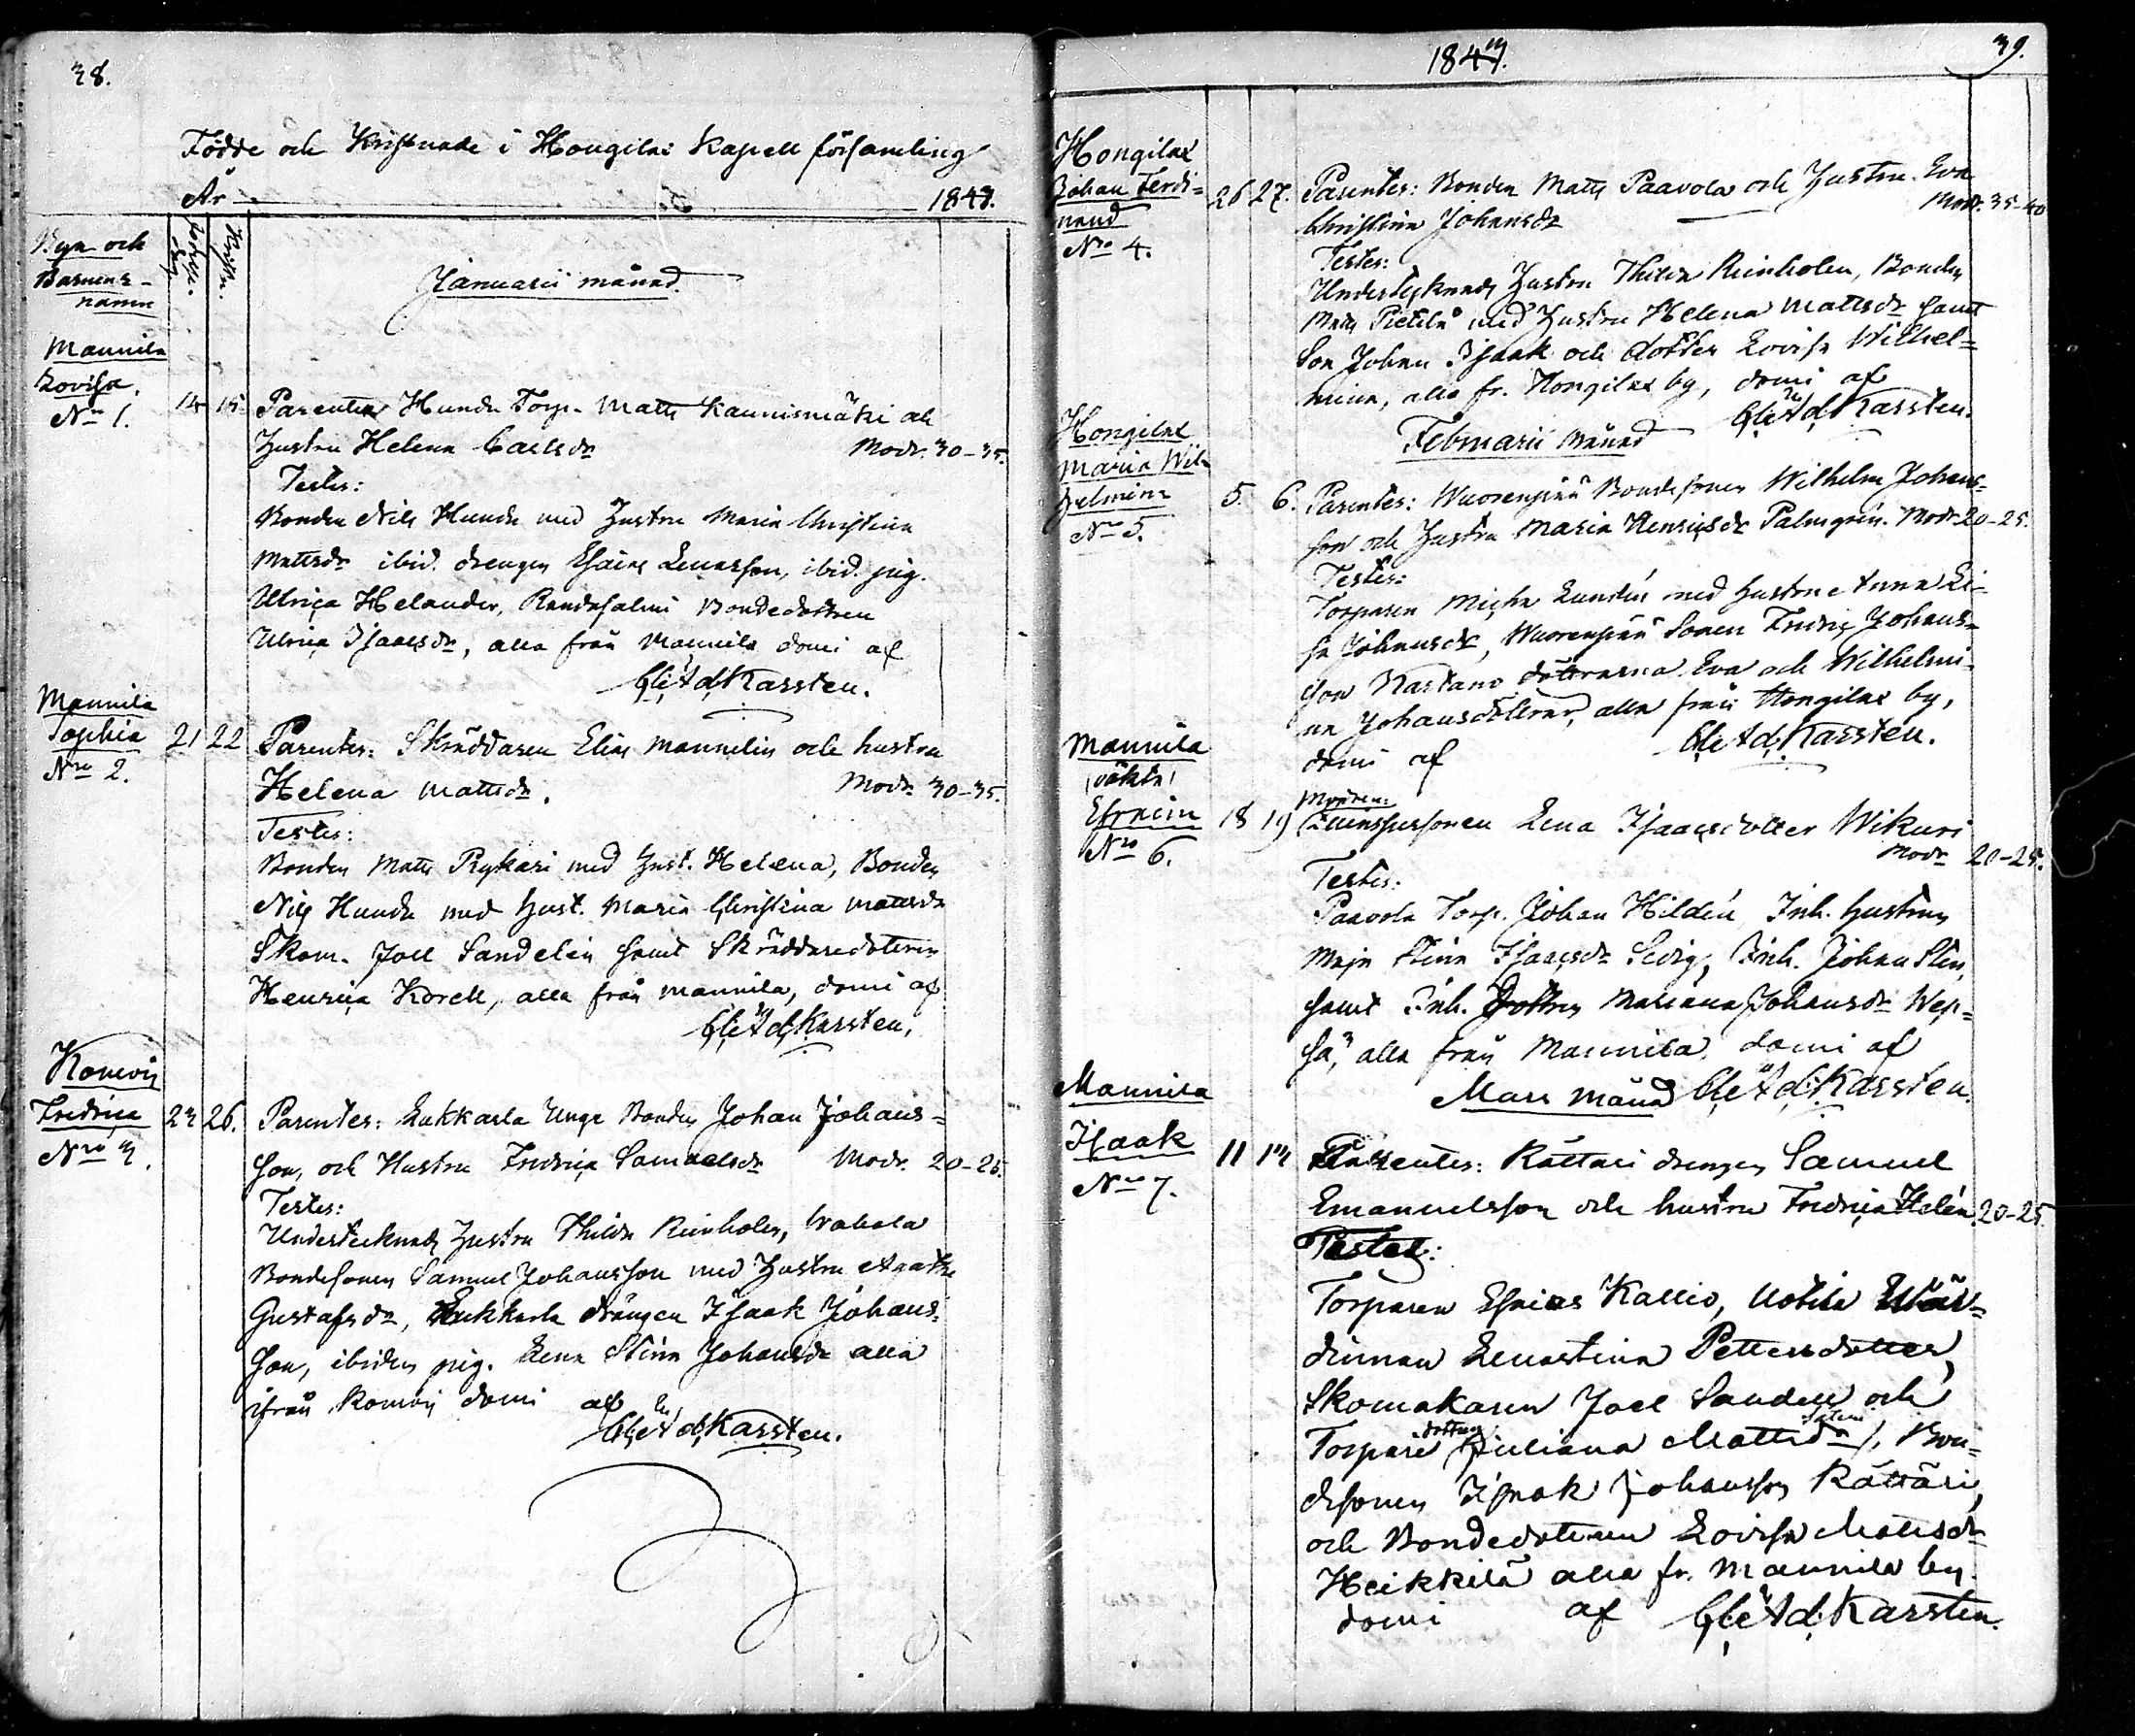 38.
Födde och Kristnade i Hongilax Kapell församling
År 1843.
Byn och
Barnens
namn
Födelse
dag
Kristn.
Januarii månad.
Mannila
Lovisa.
No 1.
14 15 Parentes Hundu Torp. Matts Kaunismäki och
Hustru Helena Carlsdr Modr. 30-35.
Testes:
Bonden Nils Hundu med Hustru Maria Christina
Mattsdr ibid. drengen Esaias Lenasson, ibid. pig.
Ulrica Helander, Bondedottren
Ulrica Isaacsdr, alla från Mannila domi af
Ad. Karsten.
Mannila
Sophia
Nro 2.
21 22 Parentes: Skräddaren Elias Mannelin och hustru
Helena Mattsdr. Modr 30-35.
Testes:
Bonden Matts Rykäri med Hust. Helena, Bonden
Nils Hundu med Hust. Maria Christina Mattsdr
Skom. Joel Sandelin samt Skräddaredotteren
Henrica Korell, alla från Mannila, domi af
Ad. Karsten.
Komois
Fredrica
Nro 3.
23 26. Parentes: Lukkarla Unge Bonden Johan Johans=
son, och Hustru Fredrica Samuelsdr Modr. 20-25.
Testes:
Undertecknads Hustru Thilda Reinholm, Wahala
Bondesonen Samuel Johansson med Hustru Agatha
Gustafsdr, Lukkarla drängen Isaak Johans=
son, ibidem pig. Lena Stina Johansdr alla
ifrån Komois domi af
Ad. Karsten.
1843. 39.
Hongilax
Johan Ferdi=
nand
No 4.
26 27. Parentes: Bonden Matts Paavola och Hustru Eva
Christina Johansdr Modr. 35-40
Testes:
Undertecknads Hustru Thilda Reinholm, Bonden
Matts Pietilä med Hustru Helena Mattsdr samt
Son Johan Isaak och dotter Lovisa Wilhel=
mina, alla fr. Hongilax by, domi af
Ad. Karsten.
Februarii månad
Hongilax
Maria Wil-
helmina
No 5.
5. 6. Parentes: Wuorenpää Bondesonen Wilhelm Johans=
son och Hustru Maria Henricsdr Palmgrén. Modr 20-25.
Testes:
Torparen Micha Lundén med hustru Anna Li-
sa Johansdr, Wuorenpää Sonen Fredric Johans-
son Kastano döttrarna Eva och Wilhelmi-
na Johansdöttrar, alla från Hongilax by,
domi af Ad. Karsten.
Mannila
(oäkta)
Efraim
Nro 6.
18 19 Modren:
Qvinspersonen Lena Isaacsdotter Wikuri
Modr 20-25.
Testes:
Paavola Torp. Johan Hildén, Inh. hustrun
Maja Stina Isaacsdr Sedig, Inh. Johan Sten,
samt Inh. dottren Mariana Johansdr Wep=
sä, alla från Mannila, domi af
Ad. Karsten.
Mars månad
Mannila
Isaak
No 7.
11 13 Parentes: Rättäri drengen Samuel
Emanuelsson och hustru Fredrica Helén 20-25.
Testes:
Torparen Esaias Kallio, Uotila Wär=
dinnan Lenastina Pettersdotter,
Skomakaren Joel Sandell och
Torpare dottren Juliana Mattsdr, Bon=
desonen Isaak Johansson Rättäri,
och Bondedotteren Lovisa Mattsdr
Heikkilä alla fr. Mannila by.
domi af Ad. Karsten.